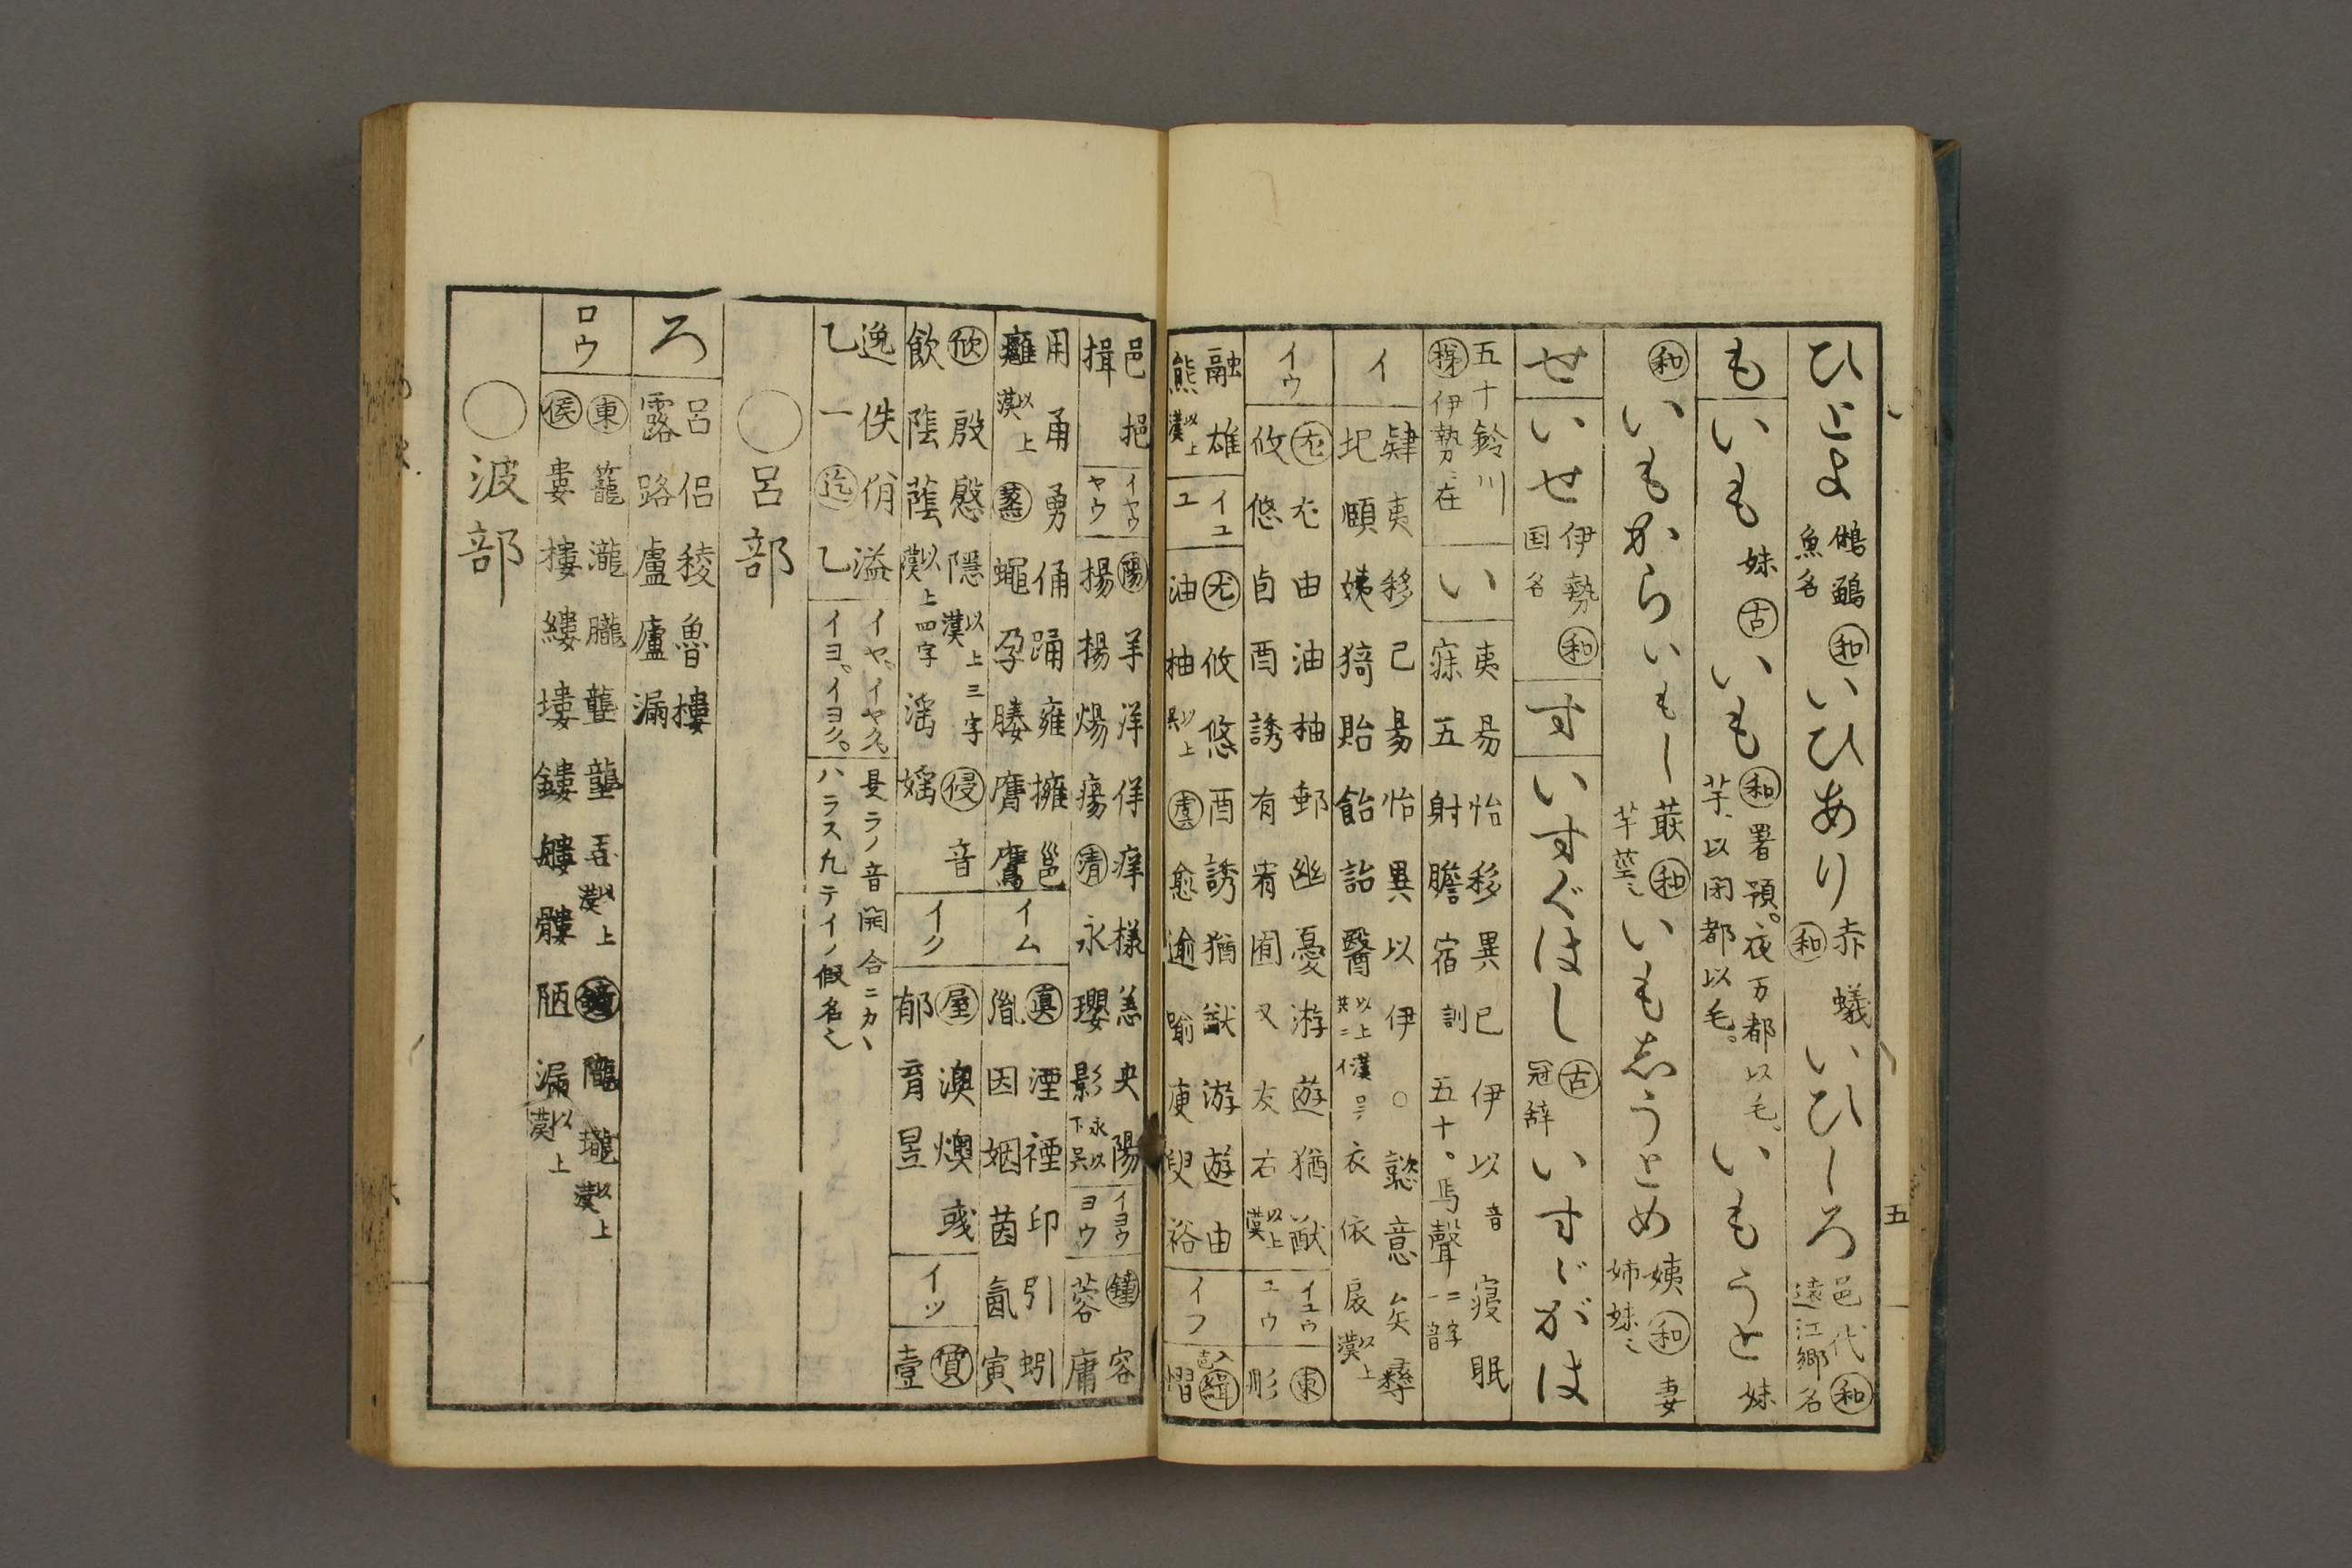 ひとよ 鵂鶹 魚名 和 いひあり 赤蟻 和 いひしろ 邑代 和 遠江郷名
も いも 妹 古 いも 和 署預。衣万都以毛。芋、以閉都以毛。 いもうと 妹
和 いもから いもし 蔌 和 芋茎也 いもしうとめ 姨 和 姉妹也 妻
せ いせ 伊勢 和 国名 す いすぐはし 古 冠辞 いすゞがは
五十鈴川 伊勢ニ在 い 夷易怡移異已伊以音 寝眠寐五射膽宿訓 五十。馬聲二字一音
イ 肄夷移已易怡異以伊○懿意矣彝 圯頤姨猗貽飴詒醫 以上漢呉共ニイ 衣依扆 以上漢
イウ 尤 尤由油柚郵幽憂游遊猶猷 攸悠卣酉誘有宥囿又友右 以上漢 イユウ ユウ 東 肜
融雄熊 以上漢 イユ ユ 尤 攸悠酉誘猶猷游遊由油柚 以上呉 虞 愈逾踰庾臾裕 イフ 緝 入声 熠
邑挹揖 イヤウ ヤウ 陽 羊洋佯痒様恙央陽揚楊煬瘍 清 永瓔影 永以下呉 イヨウ ヨウ 鍾 容蓉庸
用甬勇俑踊雍擁邕癰 以上漢 蒸 蠅孕媵膺鷹 イム 真 湮禋印引蚓胤因姻茵氤寅
欣 殷慇隠 以上三字漢 侵 音飲陰蔭 以上四字漢 淫婬 イク 屋 澳燠彧郁育昱 イツ 質 壹
逸佚佾溢乙一 迄 乙 イヤ、イヤク。イヨ、イヨク。 是ラノ音開合ニカヽハラス凡テイノ假名也
○呂部
ろ 呂侶稜魯樓露路盧廬漏
ロウ 東 籠瀧朧聾壟弄 以上漢 鍾 隴瓏 以上漢 侯 婁樓縷塿鏤髏陋漏 以上漢
○波部
五